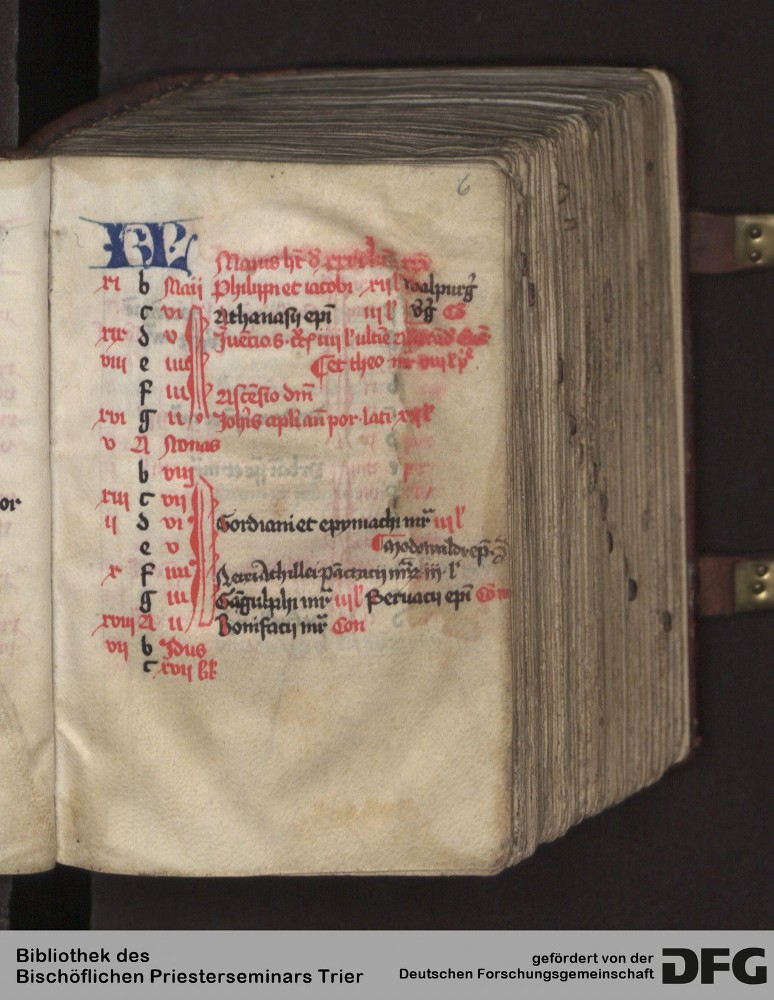 6
KL
Maius ht d xxxi
xi b Maii Philippi et iacobi xii l walpurg
c vi Athanasii epi iii l vg co
xix d v
viii e iiii et theo
f iii Ascensio dni
xvi g ii Johis apli an por lati
or
v A Nonas
b viii
xiii c vii
ii d vi Gordiani et epymachi mr iii l
e v
x f iiii Nerei Achillei pancracii mr iii l
g iii Gangulphi mr iii l Seruacii epi Com
xviii A ii Bonifacii mr Com
vii b Idus
c xvii kl
Bibliothek des
Bischöflichen Priesterseminars Trier
gefördert von der
Deutschen Forschungsgemeinschaft
DFG